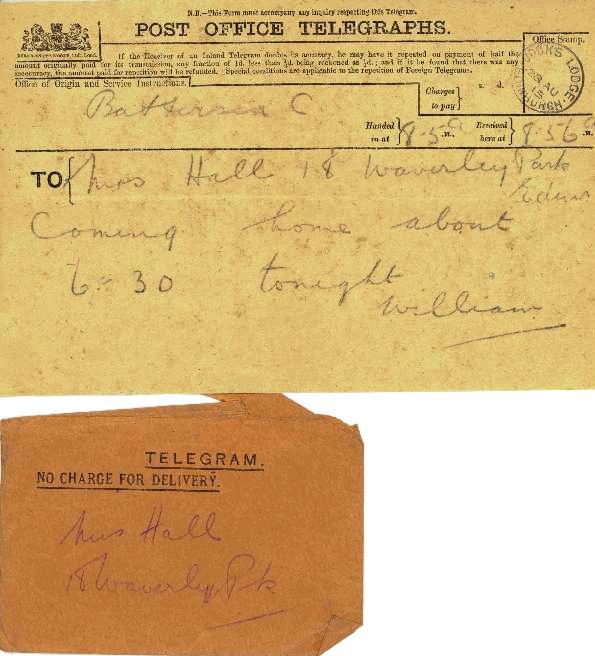 N.B.—This Form must accompany any inquiry respecting this Telegram.
POST OFFICE TELEGRAPHS.
If the Receiver of an Inland Telegram doubts its accuracy, he may have it repeated on payment of half the
amount originally paid for its transmission, any fraction of 1d. less than ½d. being reckoned as ½d.; and if it be found that there was any
inaccuracy, the amount paid for repetition will be refunded. Special conditions are applicable to the repetition of Foreign Telegrams.
Office of Origin and Service Instructions.
Office Stamp.
LODGE
AU
15
Charges to pay
s. d.
Battersea C
Handed in at 8.5 a .M., Received here at 8.56 a .M.
TO Mrs Hall 18 Waverley Park
Edinr
Coming home about
6-30 tonight
William
TELEGRAM.
NO CHARGE FOR DELIVERY.
Mrs Hall
18 Waverley Pk